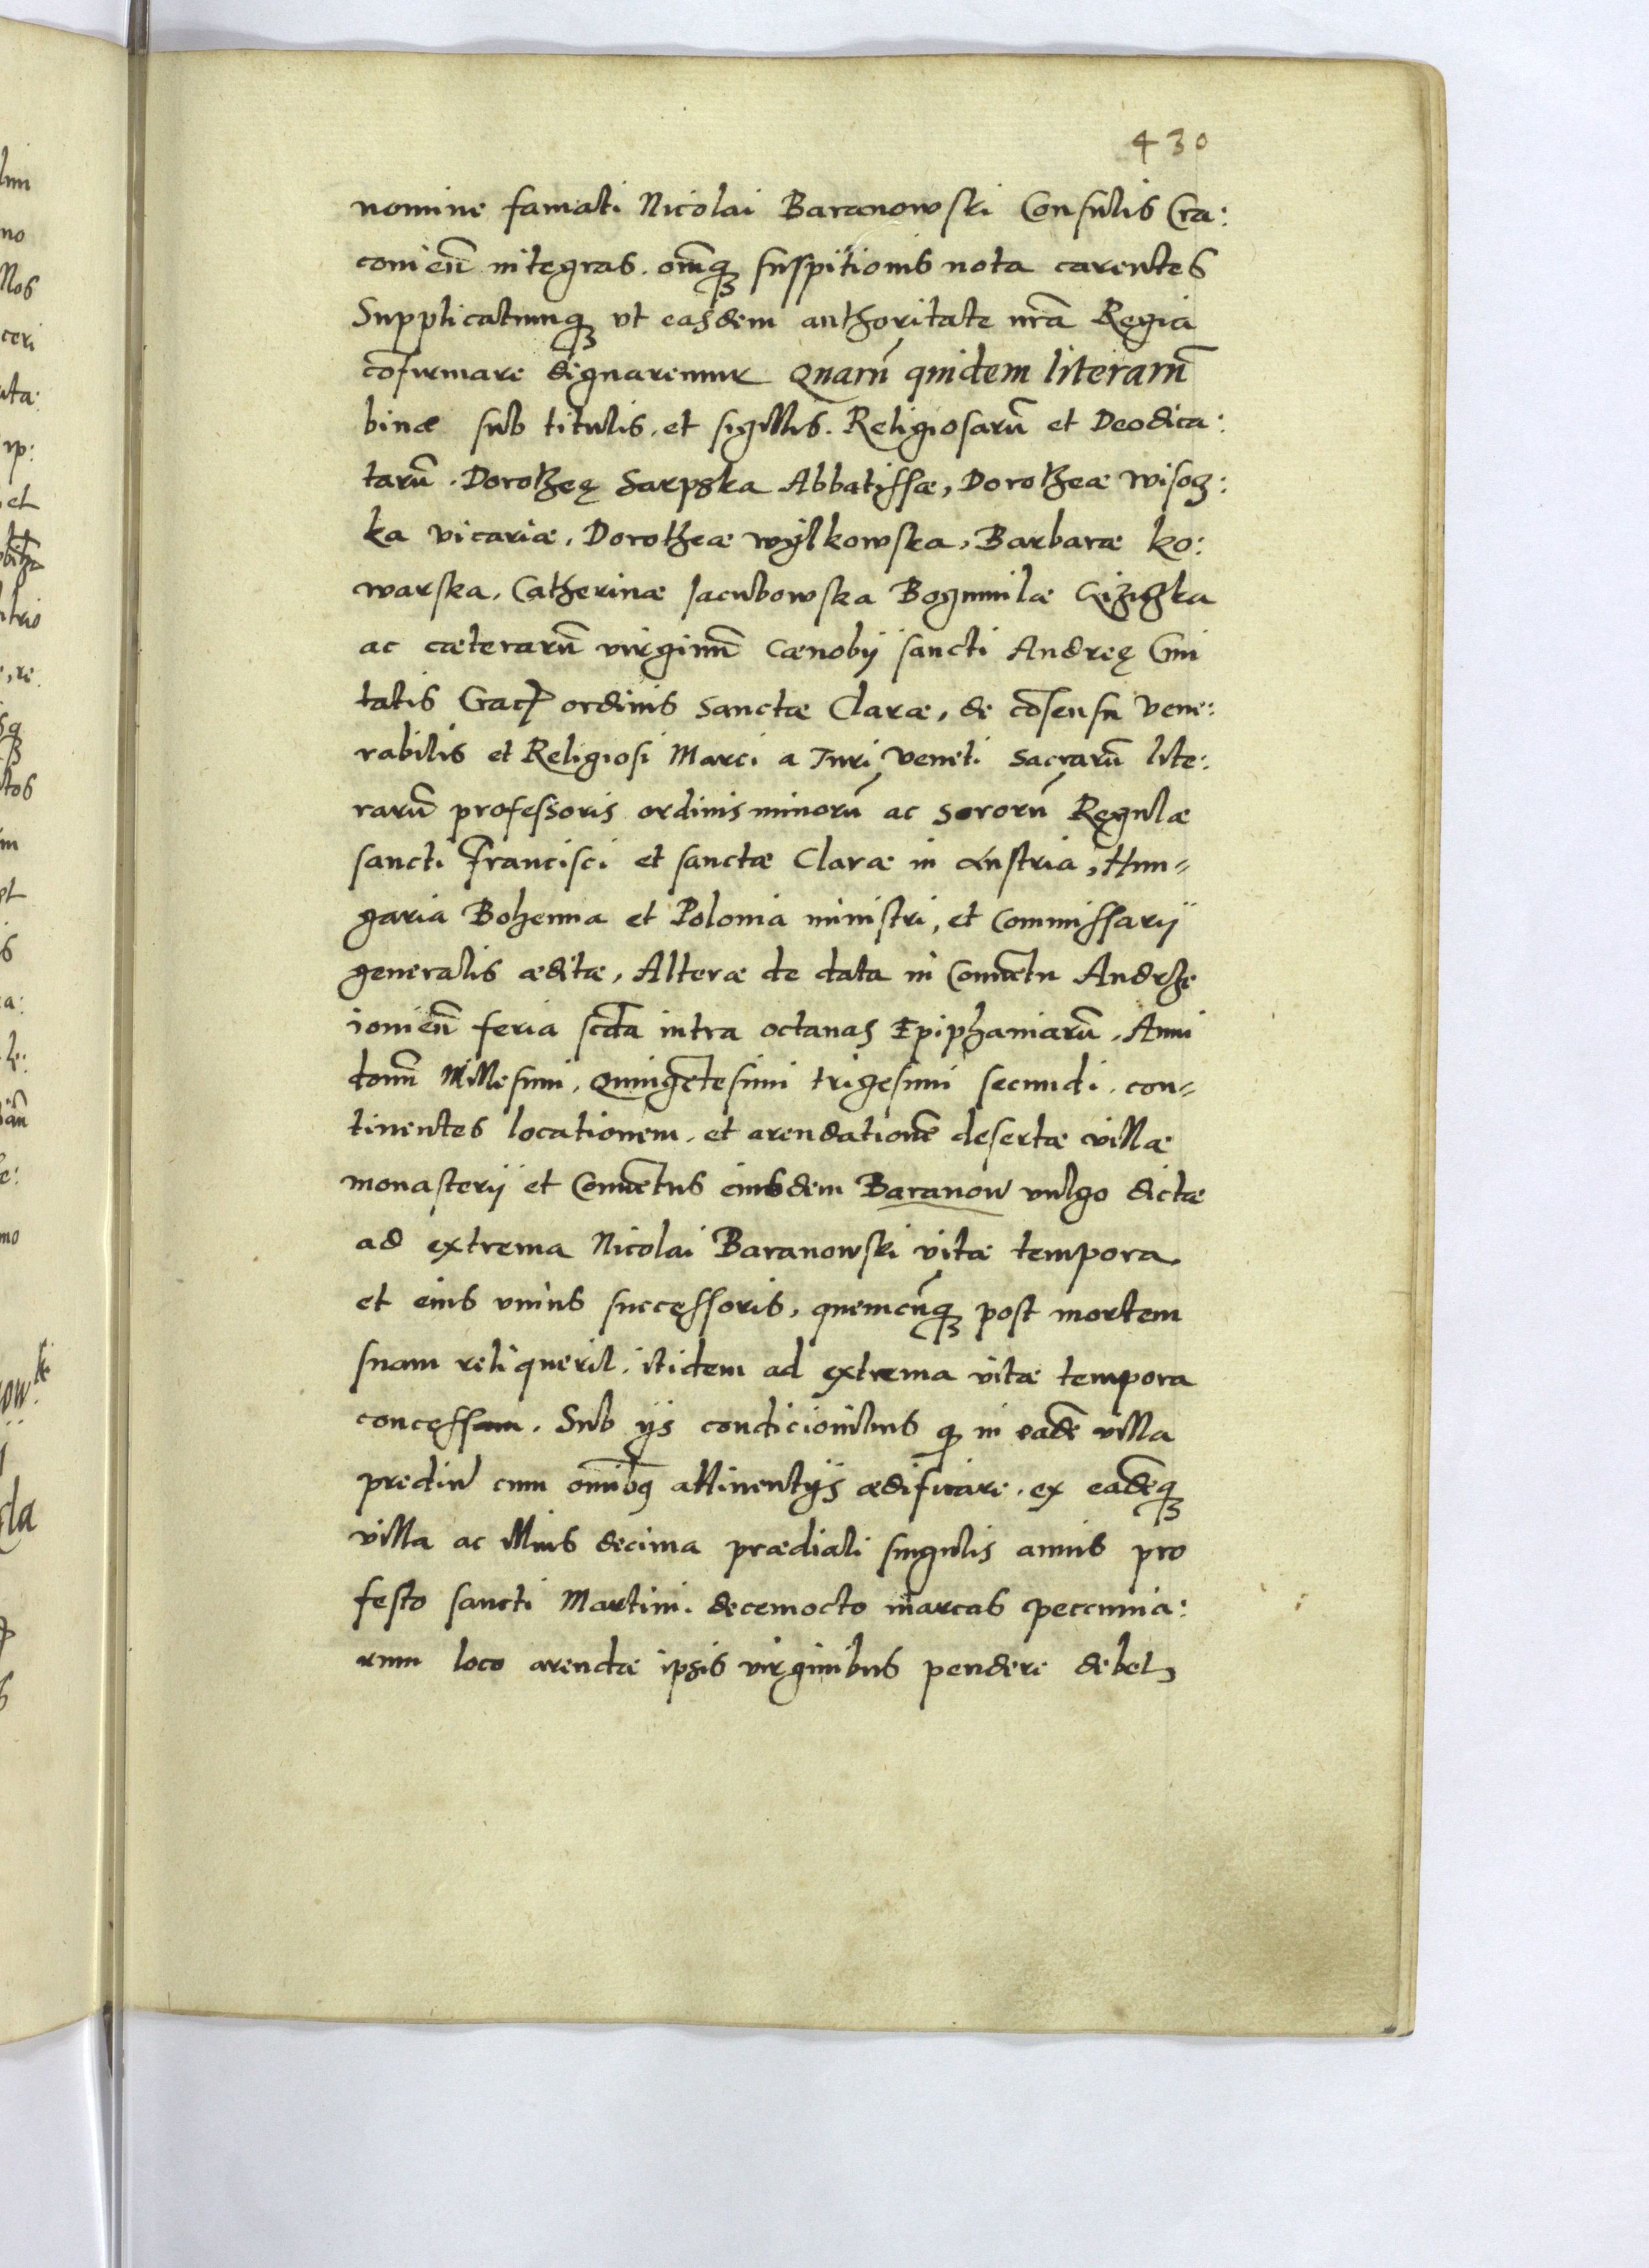 430
nomine famati Nicolai Baranowski Consulis Cra:
couień integras. omq̃ suspitionis nota carentes
Supplicatumq̃ vt easdem authoritate nrã Regia
cõfirmare dignaremur Quarũ quidem literarũ
binæ sub titulis, et sigillis. Religiosarũ et Deodica:
tarũ. Dorotheę Sarpska Abbatissæ, Dorotheæ Wisoz:
ka vicariæ, Dorotheæ Wylkowska, Barbaræ Ko:
warska, Catherinæ Jacubowska Bogumilæ
ac cæterarũ virginũ Cænobij sancti Andreę Civi
tatis ordinis Sanctæ Claræ, de cõsensu Vene:
rabilis et Religiosi Marci a Turi Veneti Sacrarũ lite:
rarũ professoris ordinis minorũ ac Sororũ Regulæ
sancti Francisci et sanctæ Claræ in Austria, Hun=
garia Bohemia et Polonia ministri, et Commissarij
generalis æditæ, Alteræ de data in Conuẽtu Andrze
iouień feria scda intra octauas Epiphaniarũ, Anni
domñ Millesimi, Quingẽtesimi trigesimi secundi. con=
tinentes locationem, et arendationẽ desertæ villæ
monasterij et Conuẽtus eiusdem Baranow vulgo dictæ
ad extrema Nicolai Baranowski vitæ tempora
et eius vnius successoris, quemcũq̃ post mortem
suam reliquerit, itidem ad extrema vitæ tempora
concessam. Sub ijs condicionibus q̃ in eadẽ villa
prediũ cum omĩbus attinentijs ædificare, ex eadẽq̃
villa ac illius decima prædiali singulis annis pro
festo sancti Martini. decemocto marcas peccunia:
rum loco arendæ ipsis virginibus pendere debet,